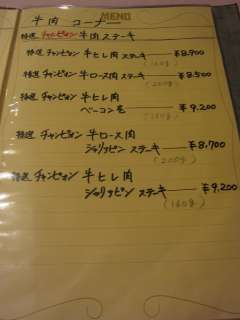 MENU
牛肉 コーナー
特選 チャンピオン 牛肉 ステーキ
特選 チャンピオン 牛ヒレ肉 ステーキ ¥8,900
(160g)
特選 チャンピオン 牛ロース肉 ステーキ ¥8,500
(200g)
特選 チャンピオン 牛ヒレ肉
ベーコン巻 ¥9,200
(160g)
特選 チャンピオン 牛ロース肉
シャリアピン ステーキ ¥8,700
(200g)
特選 チャンピオン 牛ヒレ肉
シャリアピン ステーキ ¥9,200
(160g)